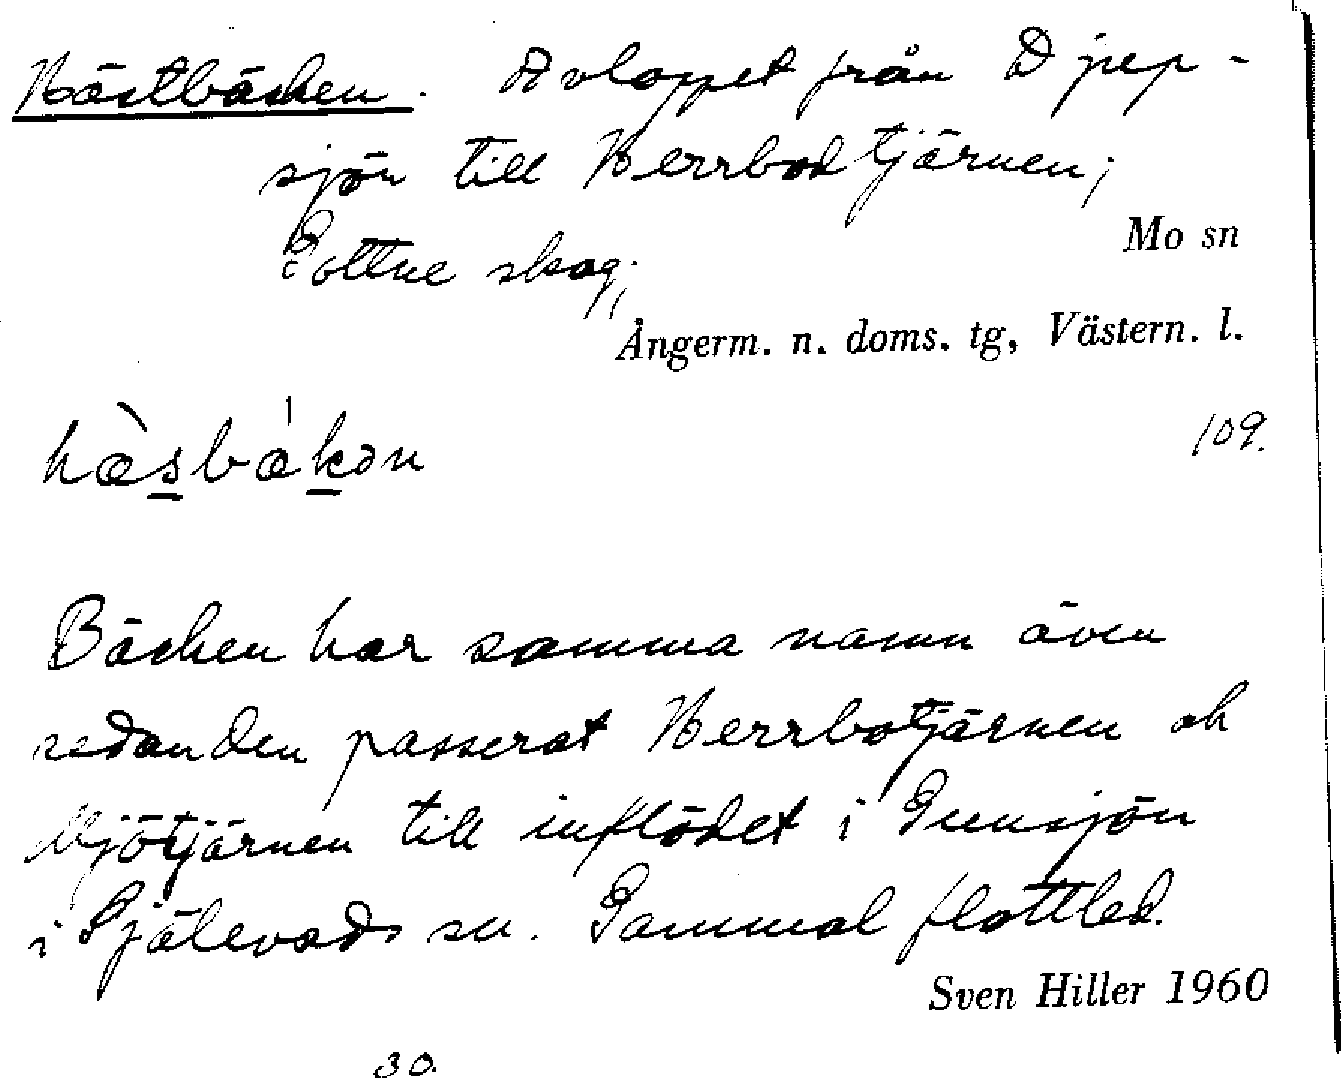 Hästbäcken. Avloppet från Djup-
sjön till Herrbodtjärnen;
Gottne skog;
Mo sn
Ångerm. n. doms. tg, Västern. l.
109.
hæ̀sbækən
Bäcken har samma namn även
sedan den passerat Herrbotjärnen och
Mjötjärnen till inflödet i Gunsjön
i Själevads sn. Gammal flottled.
Sven Hiller 1960
30.